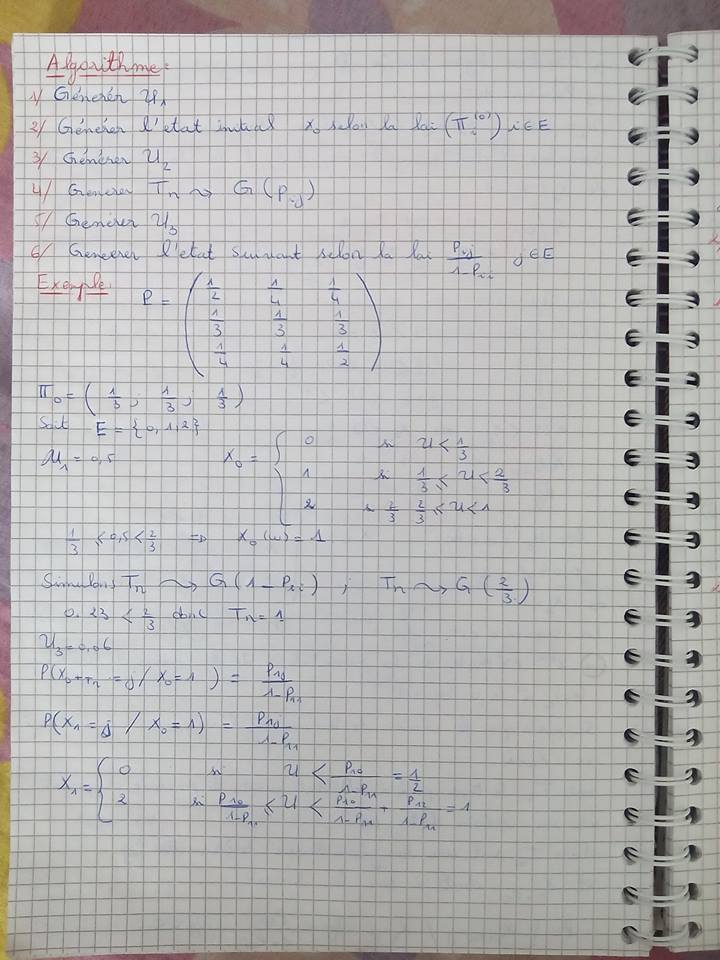 Algorithme:
1/ Générér U₁
2/ Générér l'état initial X₀ selon la loi (Πᵢ⁽⁰⁾) i∈E
3/ Générer U₂
4/ Generer Tₙ ⤳ G(pᵢⱼ)
5/ Generer U₃
6/ Geneerer l'etat suivant selon la loi Pᵢⱼ/(1-Pᵢᵢ) j∈E
Exemple: P = ( 1/2 1/4 1/4
1/3 1/3 1/3
1/4 1/4 1/2 )
Π₀ = ( 1/3 ; 1/3 ; 1/3 )
Soit E = {0, 1, 2}
U₁ = 0,5 X₀ = { 0 si U < 1/3
1 si 1/3 ≤ U < 2/3
2 si 2/3 2/3 ≤ U < 1
1/3 ≤ 0,5 < 2/3 ⇒ X₀(ω) = 1
Simulons Tₙ ⤳ G(1-Pᵢᵢ) ; Tₙ ⤳ G(2/3)
0.23 < 2/3 donc Tₙ = 1
U₃ = 0,06
P(X₀₊Tₙ = j / X₀ = 1) = P₁ⱼ/(1-P₁₁)
P(X₁ = j / X₀ = 1) = P₁ⱼ/(1-P₁₁)
X₁ = { 0 si U < P₁₀/(1-P₁₁) = 1/2
2 si P₁₀/(1-P₁₁) ≤ U < P₁₀/(1-P₁₁) + P₁₂/(1-P₁₁) = 1